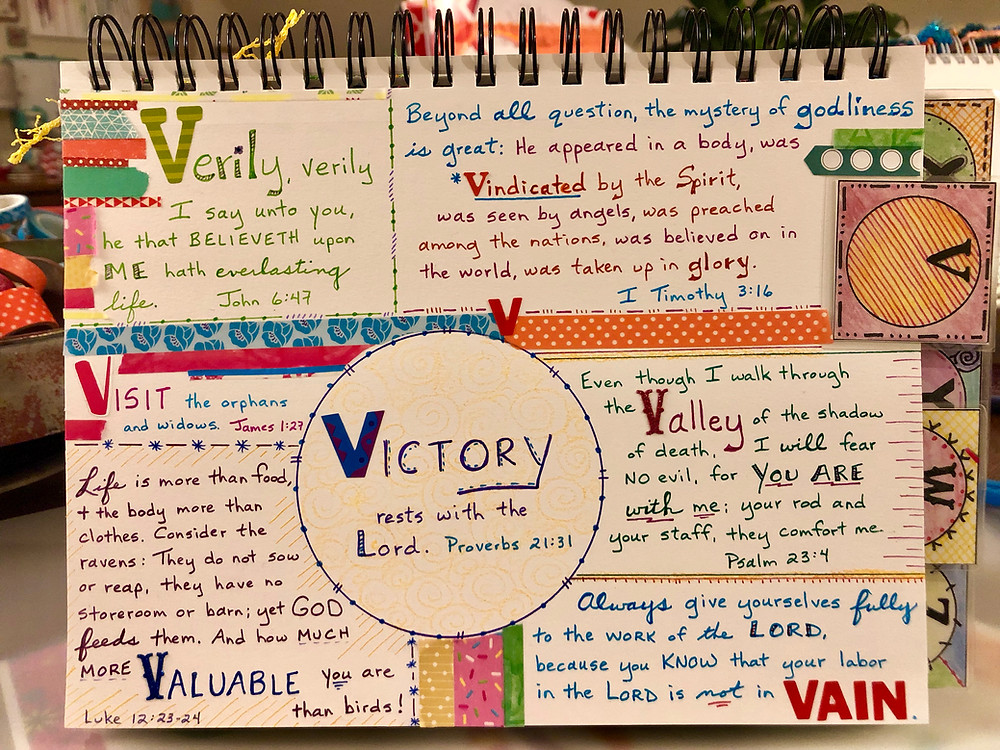 Verily, verily
I say unto you,
he that BELIEVETH upon
ME hath everlasting
life. John 6:47
Beyond all question, the mystery of godliness
is great: He appeared in a body, was
*Vindicated by the Spirit,
was seen by angels, was preached
among the nations, was believed on in
the world, was taken up in glory.
I Timothy 3:16
V
V
VISIT the orphans
and widows. James 1:27
VICTORY
rests with the
Lord. Proverbs 21:31
Even though I walk through
the Valley of the shadow
of death, I will fear
NO evil, for YOU ARE
with me; your rod and
your staff, they comfort me.
Psalm 23:4
Life is more than food,
+ the body more than
clothes. Consider the
ravens: They do not sow
or reap, they have no
storeroom or barn; yet GOD
feeds them. And how MUCH
MORE VALUABLE you are
than birds!
Luke 12:23-24
Always give yourselves fully
to the work of the LORD,
because you KNOW that your labor
in the LORD is not in VAIN.
X
Y
W